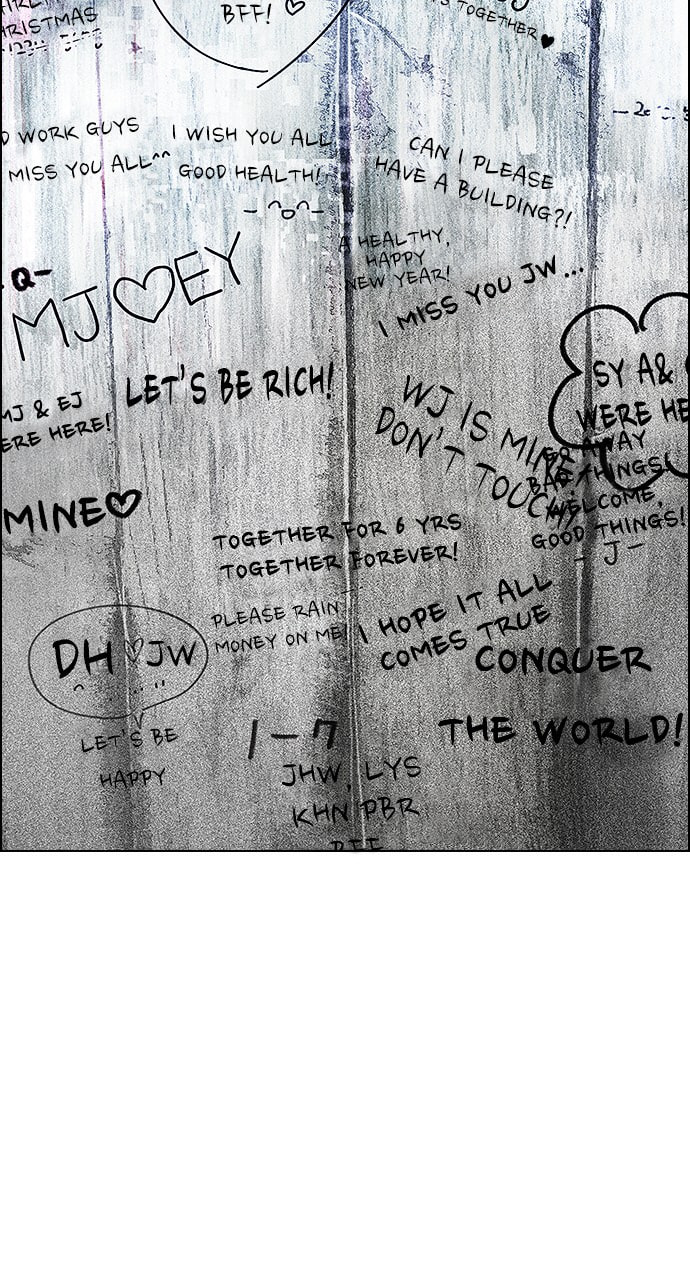 BFF!
TOGETHER
WORK GUYS
MISS YOU ALL^^
I WISH YOU ALL
GOOD HEALTH!
CAN I PLEASE
HAVE A BUILDING?!
A HEALTHY,
HAPPY
NEW YEAR!
I MISS YOU JW...
Q-
MJ♡EY
LET'S BE RICH!
MJ & EJ
ERE HERE!
MINE♡
WJ IS MINE
DON'T TOUCH!
SY A&
WERE HE
AWAY
BAD THINGS!
WELCOME,
GOOD THINGS!
- J -
TOGETHER FOR 6 YRS
TOGETHER FOREVER!
PLEASE RAIN
MONEY ON ME
I HOPE IT ALL
COMES TRUE
CONQUER
THE WORLD!
DH ♡ JW
LET'S BE
HAPPY
1-7
JHW, LYS
KHN PBR